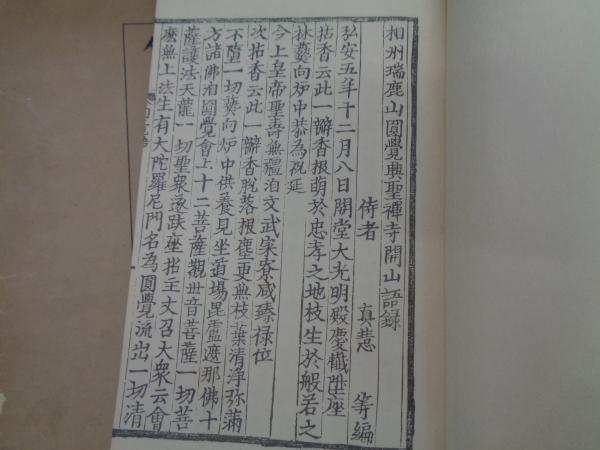 相州瑞鹿山圓覺興聖禪寺開山語録
侍者 真慧 等編
弘安五年十二月八日開堂大光明殿慶懴陞座
拈香云此一瓣香根萌於忠孝之地枝生於般若之
林爇向炉中恭為祝延
今上皇帝聖壽無疆洎文武宷寮咸臻禄位
次拈香云此一瓣香脱落根塵更無枝葉清浄弥滿
不墮一切爇向炉中供養見坐道場毘盧遮那佛十
方諸佛洎圓覺會上十二菩薩觀世音菩薩一切菩
薩護法天龍一切聖衆遂趺座拈主丈召大衆云會
麽無上法生有大陀羅尼門名為圓覺流出一切清